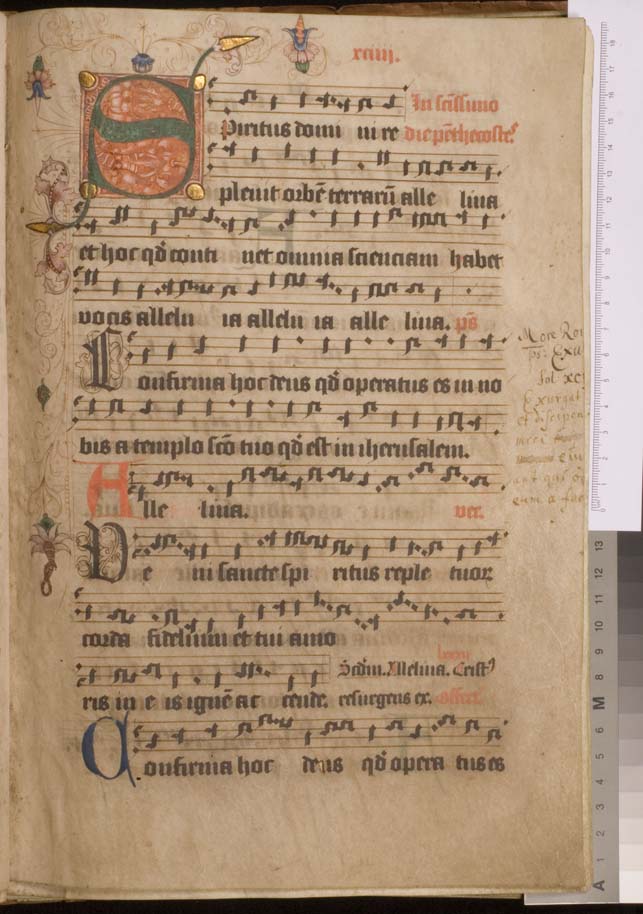 xciiij.
In sc̄issimo
Spiritus domi ni re die pēthecostes
pleuit orbē terrarū alle luia
et hoc qd̄ conti net omnia scienciam habet
vocis allelu ia allelu ia alle luia. ps̄
Confirma hoc deus qd̄ operatus es in no
bis a templo sc̄o tuo qd̄ est in iherusalem.
Alle luia. ver.
Ue ni sancte spi ritus reple tuor
corda fidelium et tui amo
Scd̄m. Alleluia. Crist⁹
ris in e is ignē ac cende. resurgens ex. offert.
Confirma hoc deus qd̄ opera tus es
More Ro
ps: Exu
fol xc
Exurgat
et dissipen
eum a fac